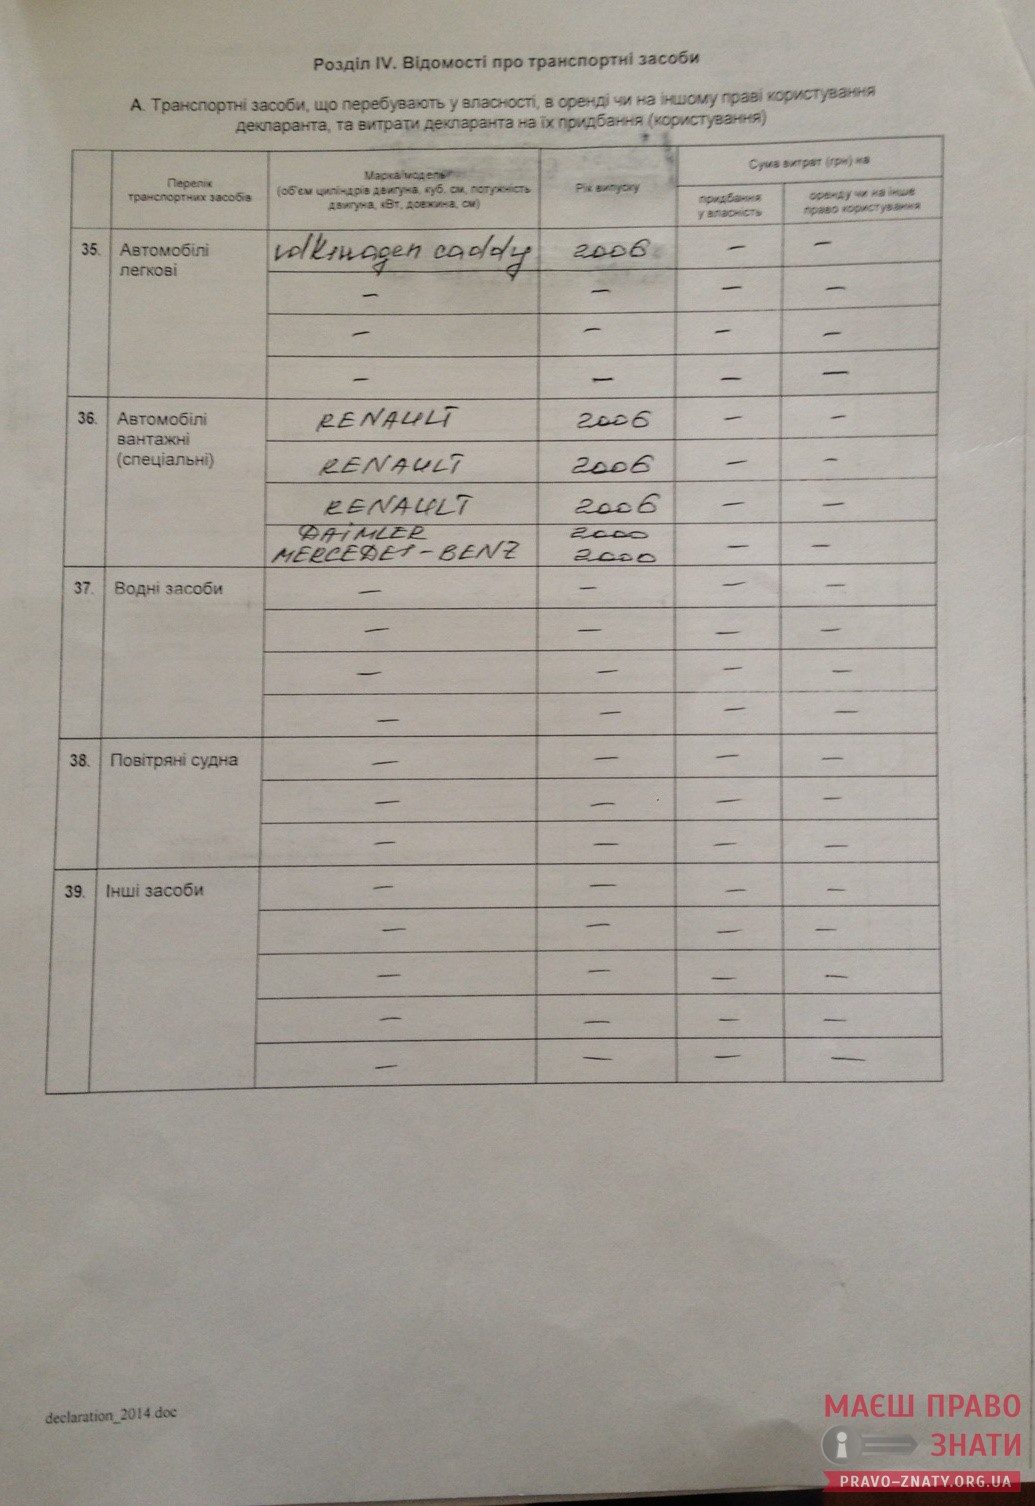 Розділ IV. Відомості про транспортні засоби
А. Транспортні засоби, що перебувають у власності, в оренді чи на іншому праві користування
декларанта, та витрати декларанта на їх придбання (користування)
Перелік
транспортних засобів
Марка/модель
(об'єм циліндрів двигуна, куб. см, потужність
двигуна, кВт, довжина, см)
Рік випуску
Сума витрат (грн) на
придбання
у власність
оренду чи на інше
право користування
35. Автомобілі
легкові
Volkswagen caddy 2006 – –
– – – –
– – – –
– – – –
36. Автомобілі
вантажні
(спеціальні)
RENAULT 2006 – –
RENAULT 2006 – –
RENAULT 2006 – –
DAIMLER 2000
MERCEDES-BENZ 2000 – –
37. Водні засоби – – – –
– – – –
– – – –
– – – –
38. Повітряні судна – – – –
– – – –
– – – –
39. Інші засоби – – – –
– – – –
– – – –
– – – –
– – – –
declaration_2014.doc
МАЄШ ПРАВО
ЗНАТИ
PRAVO-ZNATY.ORG.UA